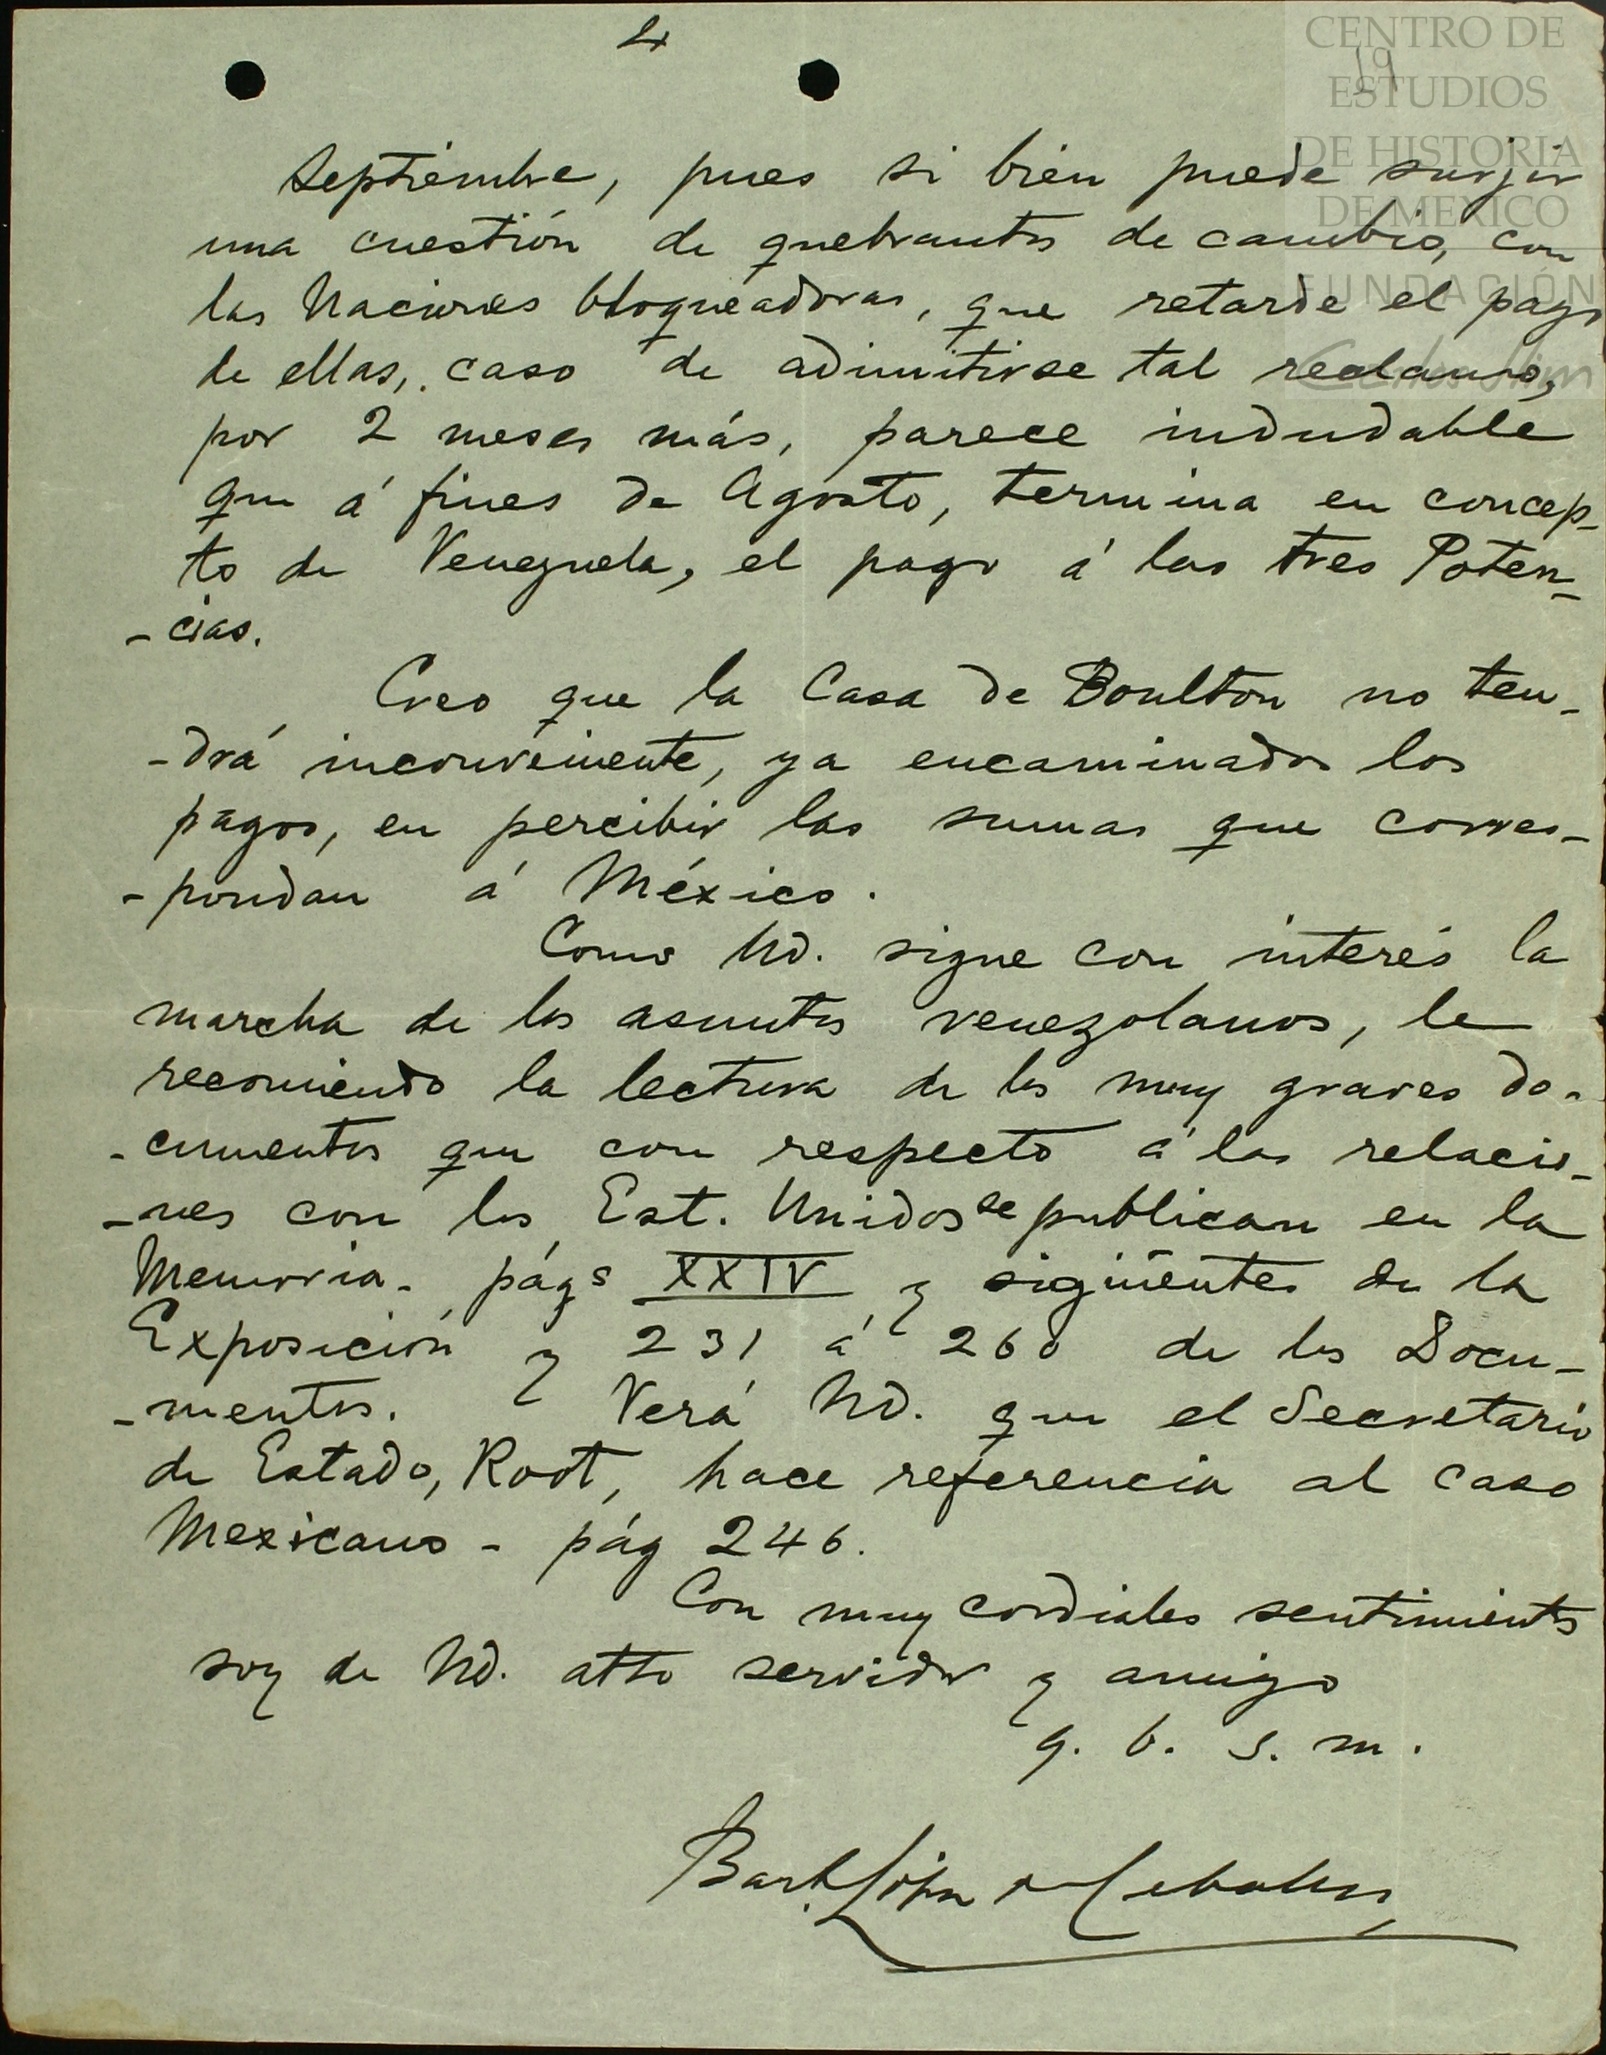 4
19
CENTRO DE
ESTUDIOS
DE HISTORIA
DE MEXICO
FUNDACIÓN
Septiembre, pues si bien puede surjir
una cuestión de quebrantos de cambio, con
las Naciones bloqueadoras, que retarde el pago
de ellas, caso de adimitirse tal reclamo,
por 2 meses más, parece indudable
que á fines de Agosto, termina en concep-
to de Venezuela, el pago á las tres Poten-
-cias.
Creo que la Casa de Boulton no ten-
-drá inconveniente, ya encaminados los
pagos, en percibir las sumas que corres-
-pondan á México.
Como Ud. sigue con interés la
marcha de los asuntos venezolanos, le
recomiendo la lectura de los muy graves do-
-cumentos que con respecto á las relacio-
-nes con los Est. Unidos se publican en la
Memoria - págs XXIV y sigüientes de la
Exposición y 231 á 260 de los Docu-
-mentos. Verá Ud. que el Secretario
de Estado, Root, hace referencia al caso
Mexicano - pág 246.
Con muy cordiales sentimientos
soy de Ud. atto servidor y amigo
q. b. s. m.
Bart. López de Ceballos